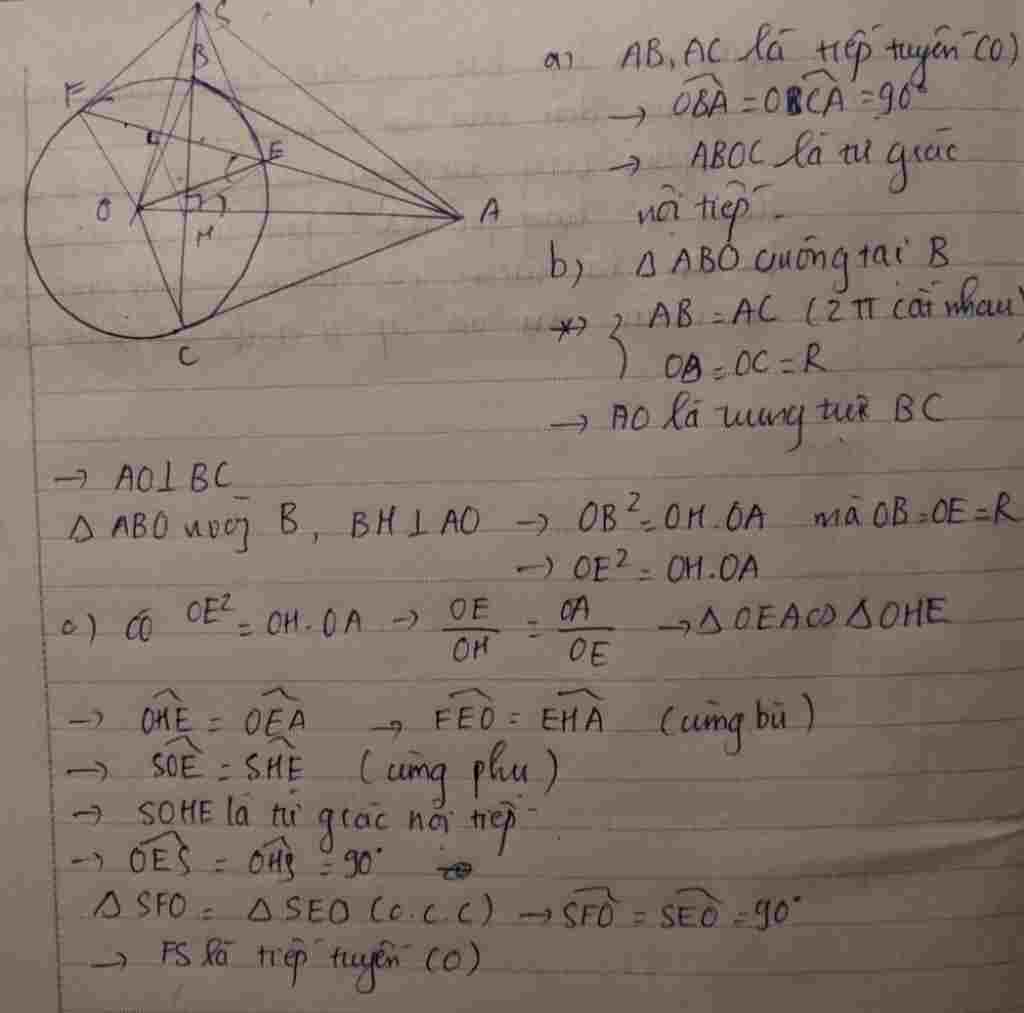 S
B
F
E
O
H
A
C
a) AB, AC là tiếp tuyến (O)
→ OBA = OCA = 90°
→ ABOC là tứ giác
nội tiếp.
b) Δ ABO vuông tại B
*) { AB = AC (2 TT cắt nhau)
OB = OC = R
→ AO là trung trực BC
→ AO ⊥ BC
Δ ABO vuông B, BH ⊥ AO → OB² = OH.OA mà OB = OE = R
→ OE² = OH.OA
c) Có OE² = OH.OA → OE/OH = OA/OE → Δ OEA ∽ Δ OHE
→ OHE = OEA → FEO = EHA (cùng bù)
→ SOE = SHE (cùng phụ)
→ SOHE là tứ giác nội tiếp
→ OES = OHS = 90°
Δ SFO = Δ SEO (c.c.c) → SFO = SEO = 90°
→ FS là tiếp tuyến (O)